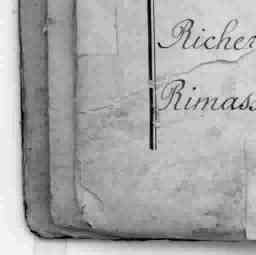 Richer
Rimass